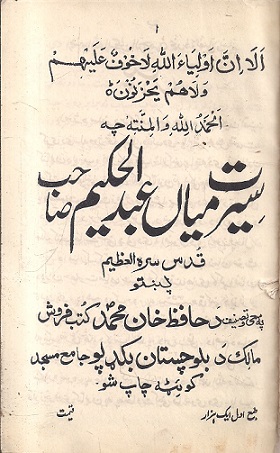 اَلَا اِنَّ اَوْلِیَاءَ اللّٰهِ لَاخَوْفٌ عَلَیْهِمْ
وَلَا هُمْ یَحْزَنُوْنَ ۝
اَلْحَمْدُ لِلّٰهِ وَالمنته چه
سیرت میاں عبدالحکیم صاحب
قدس سره العظیم
پښتو
تصنیف د حافظ خان محمد کتب فروش
مالک د بلوچستان بکډپو جامع مسجد
کوئټه چاپ شو
طبع اول ایک ہزار قیمت